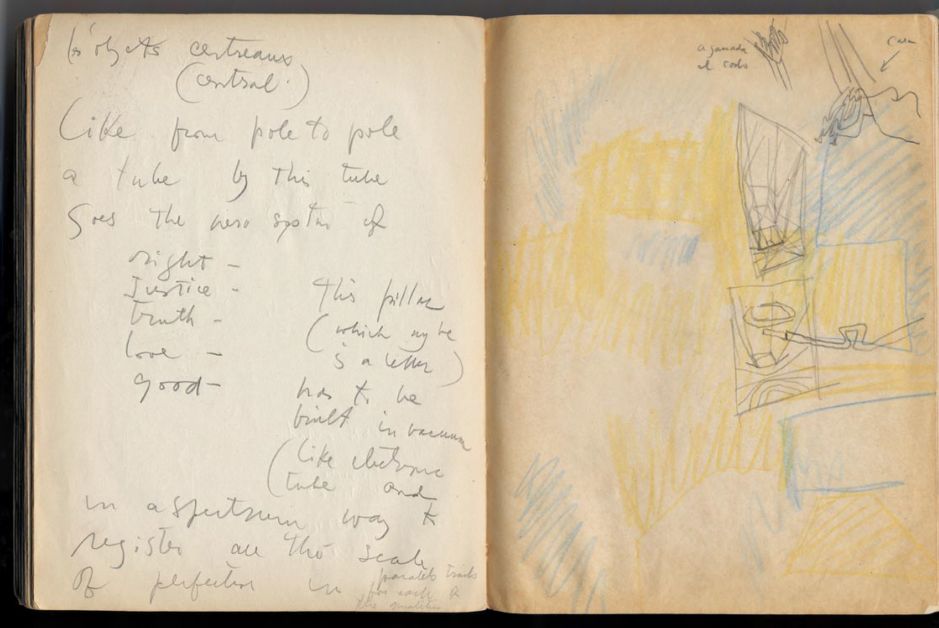 objets centreaux
(central.)
Like from pole to pole
a tube by this tube
Goes the system of
right -
Justice -
truth -
love -
good -
This pillar
(which my be
is a letter)
has to be
built in vacuum
(like electronic
tube and
in a spectrum way to
register all the scale
of perfection in
parallels tracks
for each of
the qualities
al codo
casa